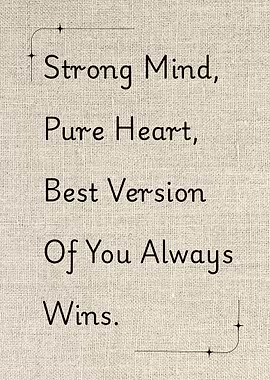 Strong Mind,
Pure Heart,
Best Version
Of You Always
Wins.